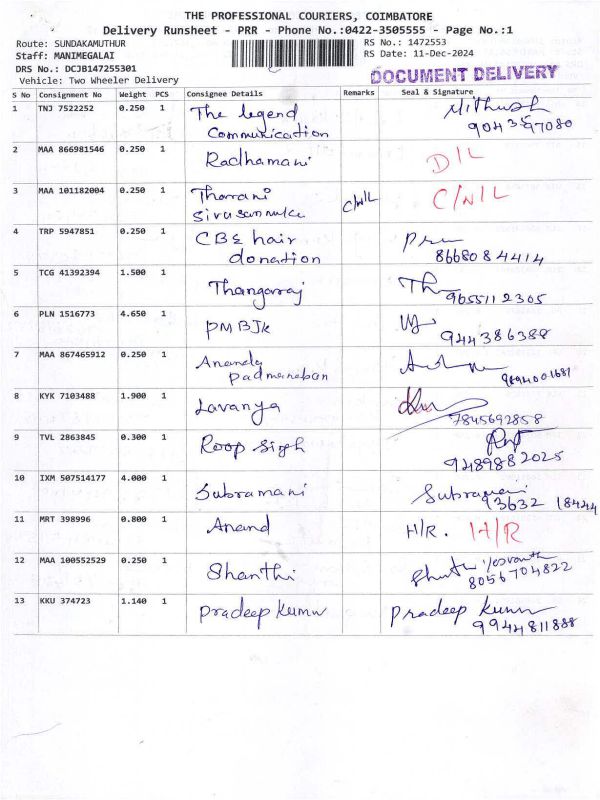 THE PROFESSIONAL COURIERS, COIMBATORE
Delivery Runsheet - PRR - Phone No.:0422-3505555 - Page No.:1
Route: SUNDAKAMUTHUR
Staff: MANIMEGALAI
DRS No.: DCJB147255301
Vehicle: Two Wheeler Delivery
RS No.: 1472553
RS Date: 11-Dec-2024
DOCUMENT DELIVERY
S No Consignment No Weight PCS Consignee Details Remarks Seal & Signature
1 TNJ 7522252 0.250 1 The legend Mithush
Communication
2 MAA 866981546 0.250 1 Radhamani D/L
3 MAA 101182004 0.250 1 Tharani C/N/L C/N/L
4 TRP 5947851 0.250 1 CBE hair
donation 8668084414
5 TCG 41392394 1.500 1 Thangaraj
9655112305
6 PLN 1516773 4.650 1 PMBJK
944386388
7 MAA 867465912 0.250 1 Ananda
padmanaban 9894001681
8 KYK 7103488 1.900 1 Lavanya
7845692858
9 TVL 2863845 0.300 1 Roop Singh
9489882025
10 IXM 507514177 4.000 1 Subramani Subramani
93632 18444
11 MRT 398996 0.800 1 Anand H/R. H/R
12 MAA 100552529 0.250 1 Shanthi
8056704822
13 KKU 374723 1.140 1 Pradeep Kumar Pradeep Kumar
9944811888